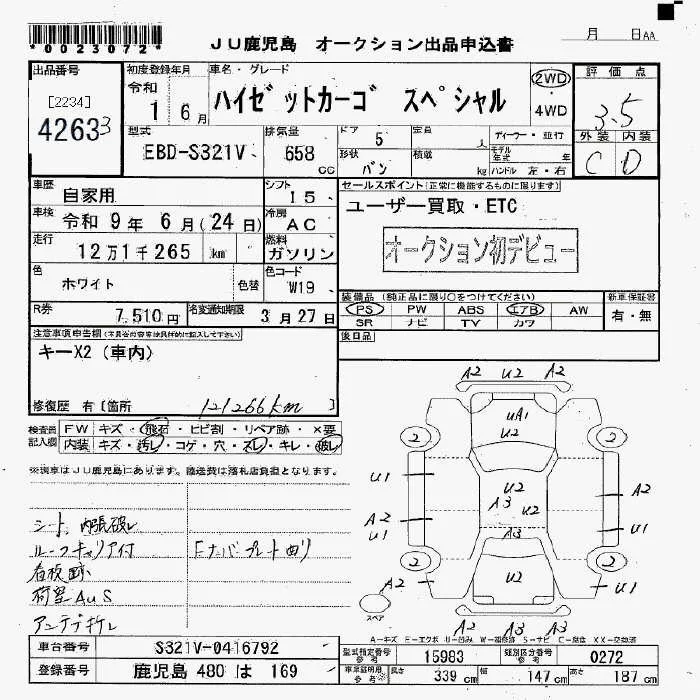 *0023072*
JU鹿児島 オークション出品申込書
月 日AA
出品番号
[2234]
42633
初度登録年月
令和
1 6月
車名・グレード
ハイゼットカーゴ スペシャル
2WD
4WD
評価点
3.5
外装 内装
C D
型式
EBD-S321V
排気量
658 cc
ドア 5
形状 バン
定員
積載 kg
ディーラー・並行
モデル年式 年
ハンドル 左・右
車歴
自家用
シフト
I5
車検
令和 9年 6月(24日)
冷房
AC
走行
12万1千265 km
燃料
ガソリン
色
ホワイト
色替
色コード
W19
R券
7,510円
名変通知期限
3月27日
セールスポイント(正常に機能するものに限ります)
ユーザー買取・ETC
オークション初デビュー
装備品(純正品に限り○をつけてください)
PS PW ABS エアB AW
SR ナビ TV カワ
新車保証書
有・無
後日品
注意事項申告欄
キーX2(車内)
修復歴 有〔箇所 121266km 〕
検査員記入欄
FW キズ・飛石・ヒビ割・リペア跡・×要
内装 キズ・汚レ・コゲ・穴・スレ・キレ・破レ
※実車はJU鹿児島にあります。陸送費は落札店負担となります。
シート、内張破レ
ルーフキャリア付
Fナンバープレート曲り
看板跡
荷室AuS
アンテナ折レ
A2 U2 A2
UA1
U2
2 2
U1
U2
A3 U2
A2
A2
U1
U1
A3
2 2
A2
U2
U1
A2 A3 A3
スペア
A-キズ E-エクボ U-凹み W-補修跡 S-サビ C-腐食 XX-交換済
車台番号
S321V-0416792
登録番号
鹿児島 480 は 169
型式指定番号 参考
15983
類別区分番号 参考
0272
車庫証明用 参考
長さ 339 cm
幅 147 cm
高さ 187 cm